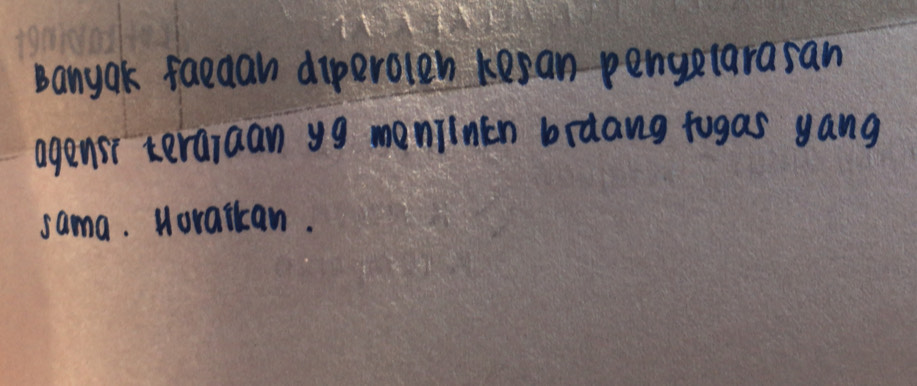 Banyak faedah diperoleh kesan penyelarasan
agensi kerajaan yg menjlnkn bidang tugas yang
sama. Huraikan.